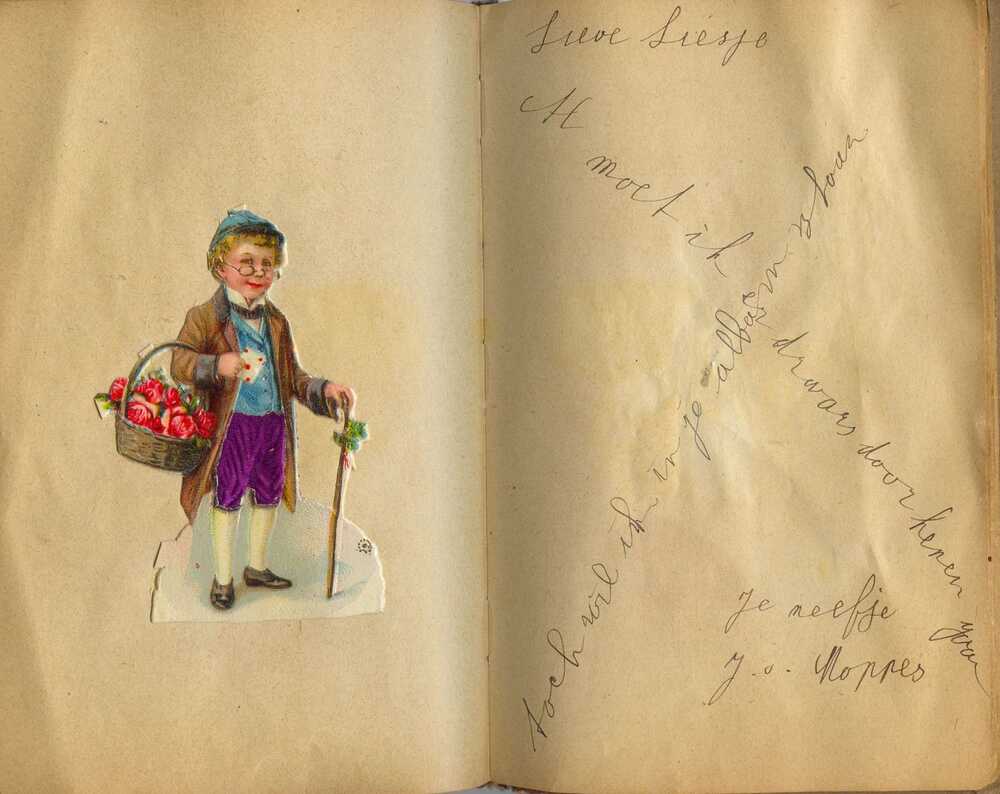 Lieve Liesje
Al
moet ik dwars door henen gaan
toch wil ik in je album staan
Je neefje
J. v. Moppes